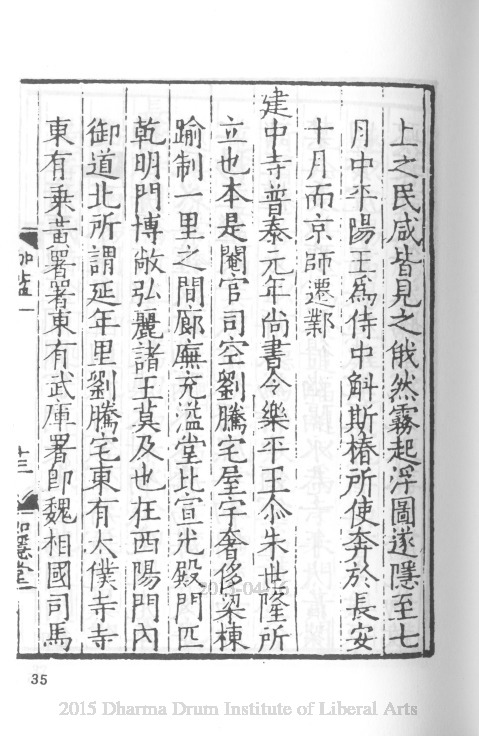 上之民咸皆見之俄然霧起浮圖遂隱至七
月中平陽王爲侍中斛斯椿所使奔於長安
十月而京師遷鄴
建中寺普泰元年尚書令樂平王尒朱世隆所
立也本是閹官司空劉騰宅屋宇奢侈梁棟
踰制一里之間廊廡充溢堂比宣光殿門匹
乾明門博敞弘麗諸王莫及也在西陽門內
御道北所謂延年里劉騰宅東有太僕寺寺
東有乘黃署署東有武庫署即魏相國司馬
伽藍一
十三
如隱堂
35
2015 Dharma Drum Institute of Liberal Arts